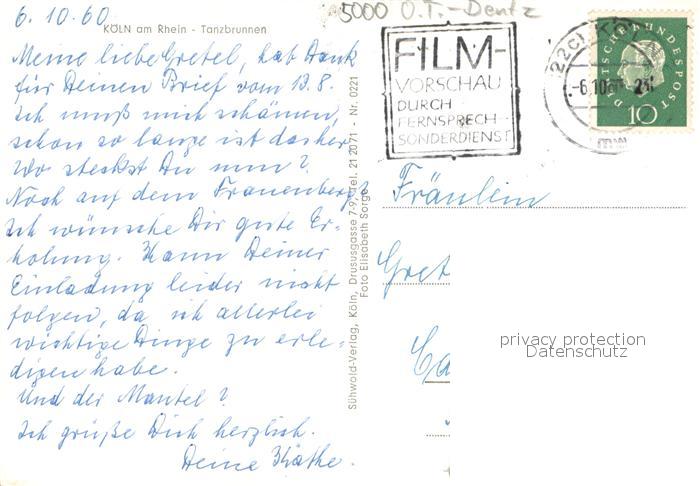 6.10.60
KÖLN am Rhein - Tanzbrunnen
Meine liebe Gretel, hab Dank
für Deinen Brief vom 13.8.
Ich muß mich schämen,
schon so lange ist das her.
Wo steckst Du nun?
Noch auf dem Frauenberg?
Ich wünsche Dir gute Er-
holung. Kann Deiner
Einladung leider nicht
folgen, da ich allerlei
wichtige Dinge zu erle-
digen habe.
Und der Mantel?
Ich grüße Dich herzlich.
Deine Käthe.
Sühwold-Verlag, Köln, Drususgasse 7-9, Tel. 21 20 71 - Nr. 0221
Foto Elisabeth Sorge
5000 O.T.-Deutz
FILM-
VORSCHAU
DURCH
FERNSPRECH-
SONDERDIENST
(22c) KÖLN
-6.10.60
DEUTSCHE BUNDESPOST
10
Fräulein
Gret
Ca
privacy protection
Datenschutz